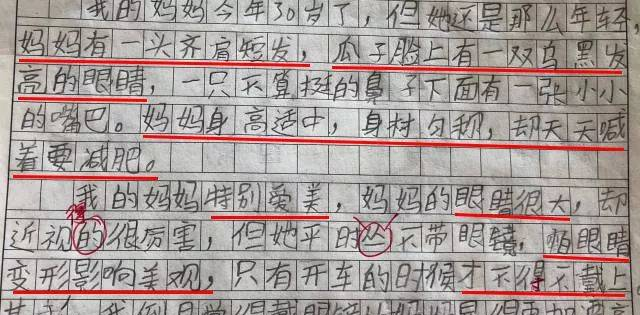 我的妈妈今年30岁了，但她还是那么年轻，
妈妈有一头齐肩短发，瓜子脸上有一双乌黑发
高的眼睛，一只不算挺的鼻子下面有一张小小
的嘴巴。妈妈身高适中，身材匀称，却天天喊
着要减肥。
我的妈妈特别爱美，妈妈的眼睛很大，却
得
近视的很厉害，但她平时从不带眼镜，怕眼睛
变形影响美观，只有开车的时候才不得不戴上